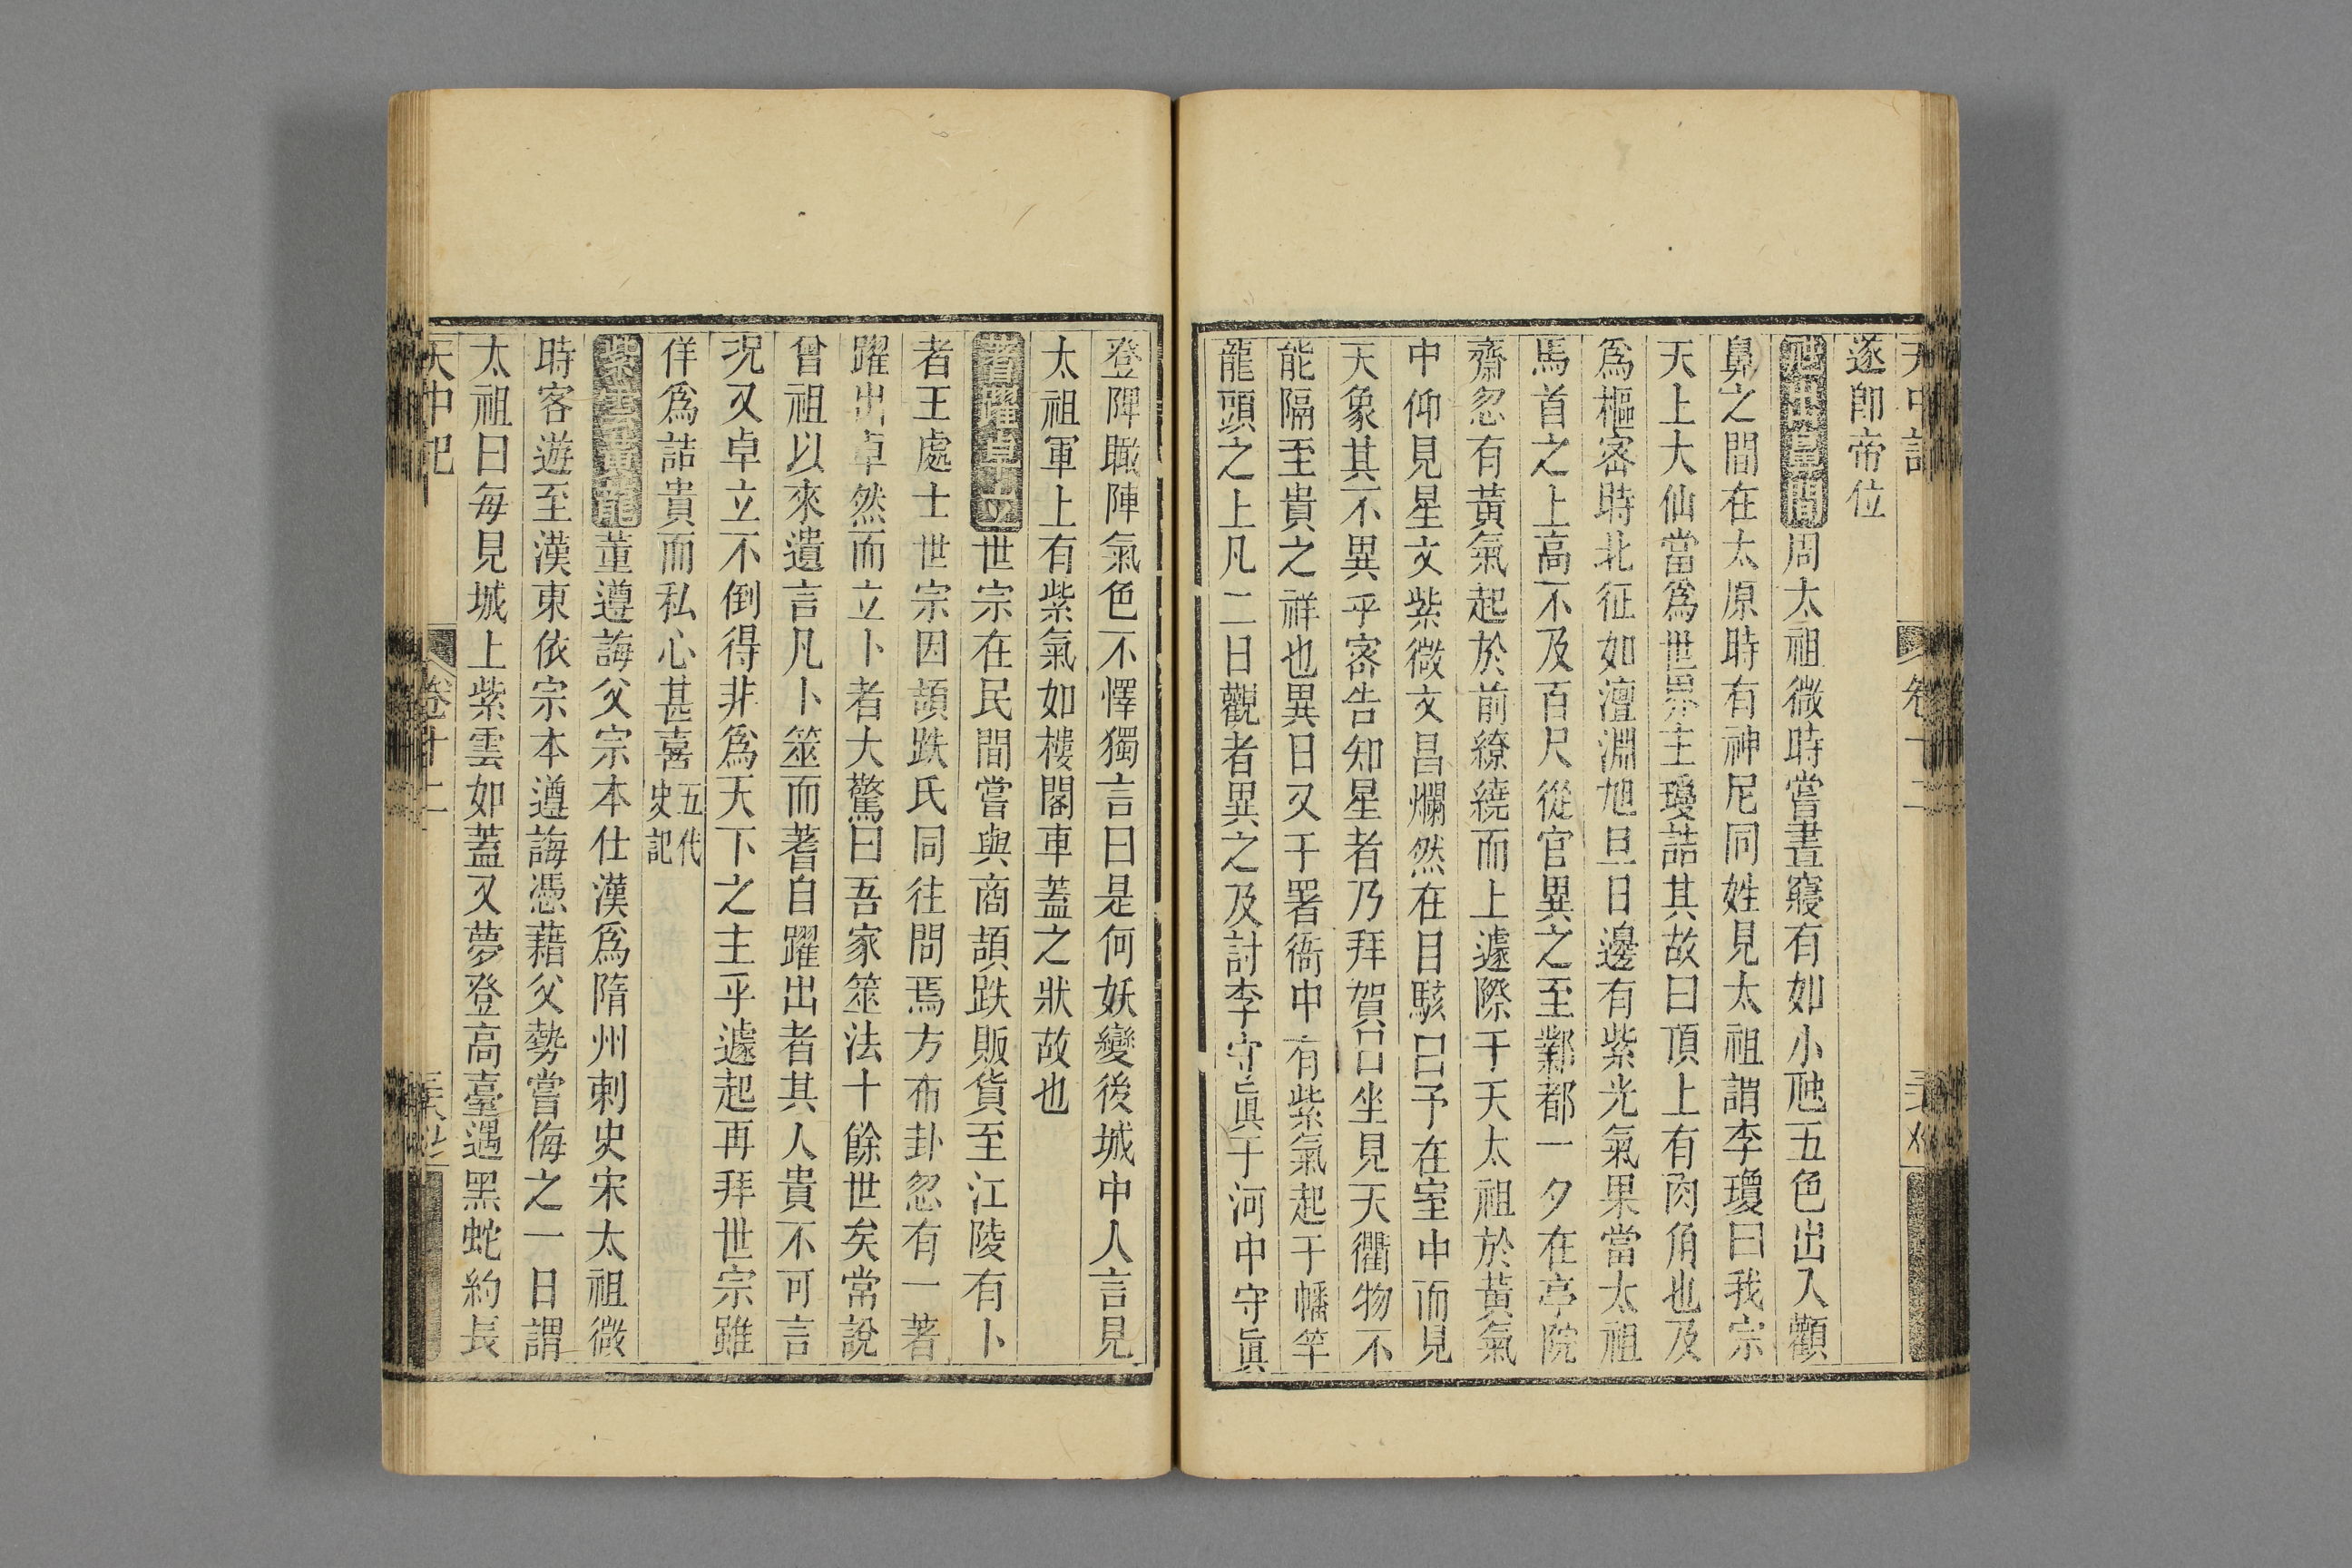 天中記
卷十二
遂即帝位
虵出鼻間周太祖微時嘗晝寢有如小虵五色出入顴
鼻之間在太原時有神尼同姓見太祖謂李瓊曰我宗
天上大仙當爲世界主瓊詰其故曰頂上有肉角也及
爲樞密時北征如澶淵旭旦日邊有紫光氣果當太祖
馬首之上高不及百尺從官異之至鄴都一夕在亭院
齋忽有黃氣起於前繚繞而上遽際于天太祖於黃氣
中仰見星文紫微文昌爛然在目駭曰予在室中而見
天象其不異乎密告知星者乃拜賀曰坐見天衢物不
能隔至貴之祥也異日又于署衙中有紫氣起于幡竿
龍頭之上凡二日觀者異之及討李守眞于河中守眞
登陴瞰陣氣色不懌獨言曰是何妖變後城中人言見
太祖軍上有紫氣如樓閣車蓋之狀故也
蓍躍卓立世宗在民間嘗與商頡跌販貨至江陵有卜
者王處士世宗因頡跌氏同往問焉方布卦忽有一蓍
躍出卓然而立卜者大驚曰吾家筮法十餘世矣常說
曾祖以來遺言凡卜筮而蓍自躍出者其人貴不可言
况又卓立不倒得非爲天下之主乎遽起再拜世宗雖
佯爲詰貴而私心甚喜五代史記
紫雲黃龍董遵誨父宗本仕漢爲隋州刺史宋太祖微
時客遊至漢東依宗本遵誨憑藉父勢嘗侮之一日謂
太祖曰每見城上紫雲如蓋又夢登高臺遇黑蛇約長
天中記
卷十二